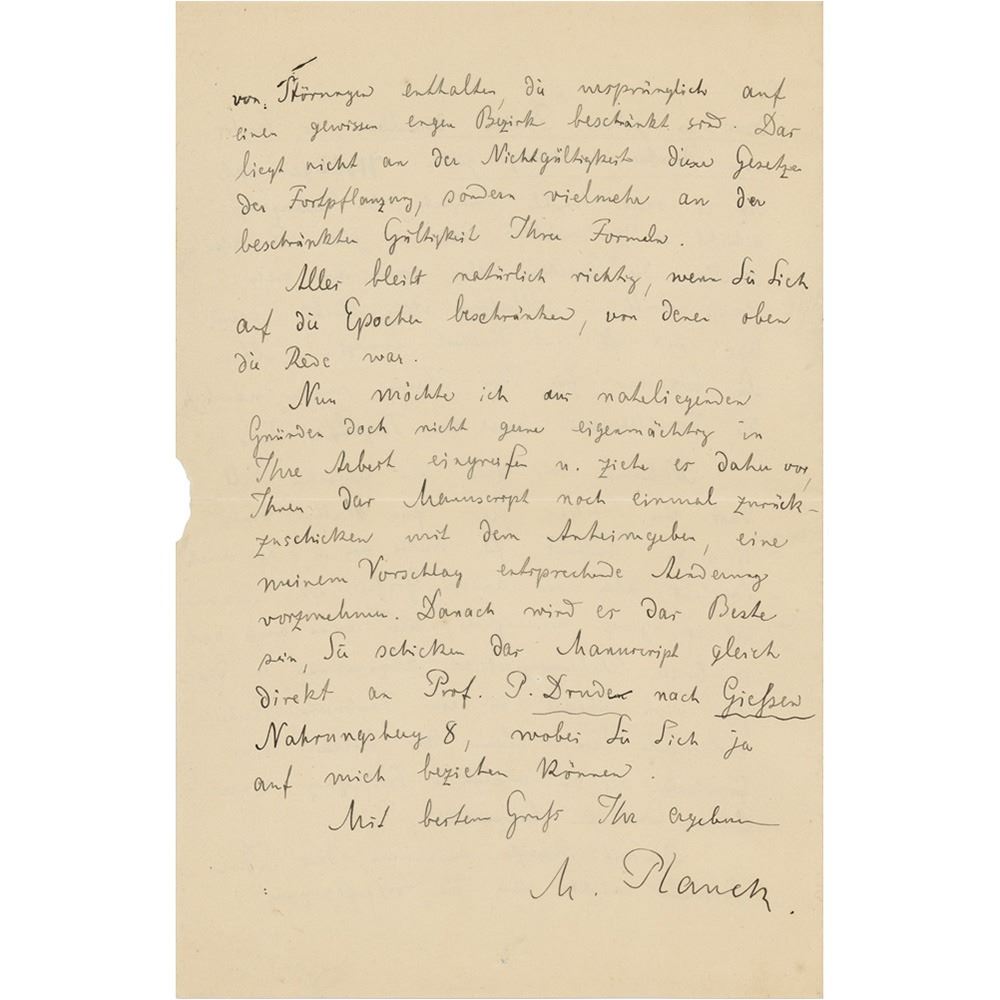 von Störungen enthalten, die ursprünglich auf
einen gewissen engen Bezirk beschränkt sind. Das
liegt nicht an der Nichtgültigkeit dieser Gesetze
der Fortpflanzung, sondern vielmehr an der
beschränkten Gültigkeit Ihrer Formeln.
Alles bleibt natürlich richtig, wenn Sie Sich
auf die Epochen beschränken, von denen oben
die Rede war.
Nun möchte ich aus naheliegenden
Gründen doch nicht gerne eigenmächtig in
Ihre Arbeit eingreifen u. ziehe es daher vor,
Ihnen das Manuscript noch einmal zurück-
zuschicken mit dem Anheimgeben, eine
meinem Vorschlag entsprechende Aenderung
vorzunehmen. Danach wird es das Beste
sein, Sie schicken das Manuscript gleich
direkt an Prof. P. Drude nach Giessen
Nahrungsberg 8, wobei Sie Sich ja
auf mich beziehen können.
Mit bestem Gruß Ihr ergebener
M. Planck.